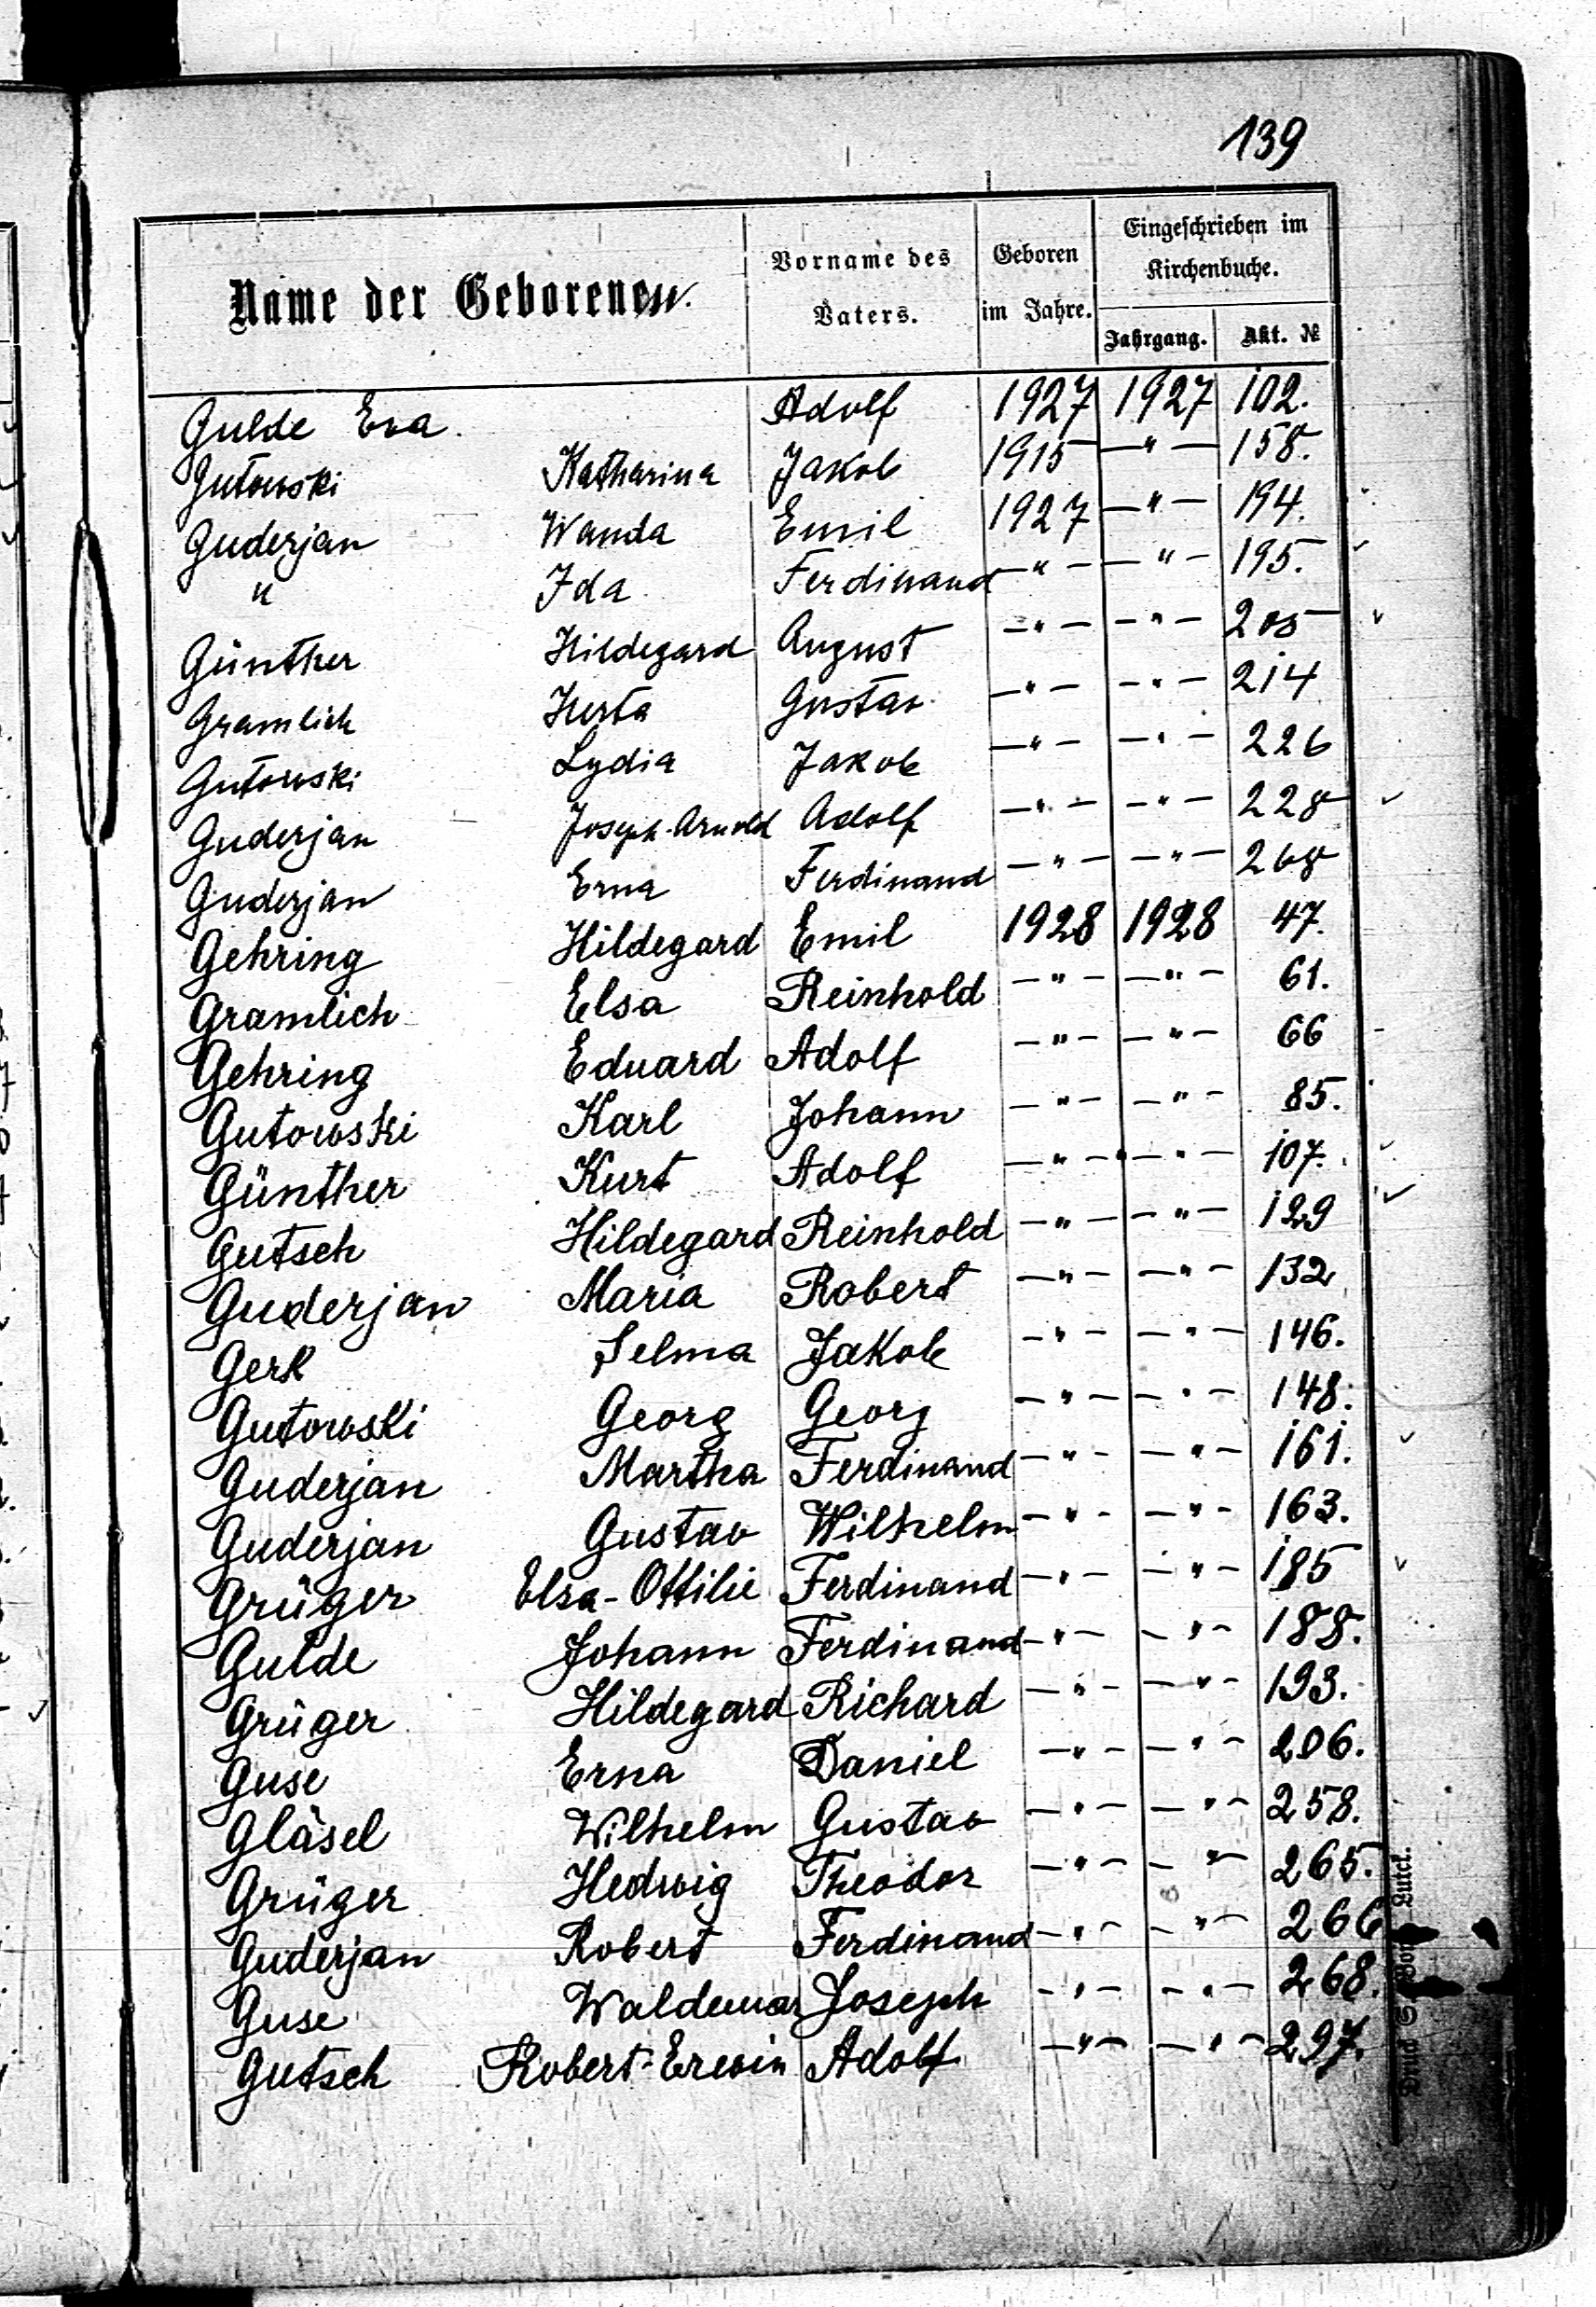 139
Name der Geborenen.
Vorname des Vaters.
Geboren im Jahre.
Eingeschrieben im Kirchenbuche.
Jahrgang. Akt. №
Gulde Eva. Adolf 1927 1927 102.
Gutowski Katharina Jakob 1915 —"— 158.
Guderjan Wanda Emil 1927 —"— 194.
" Ida Ferdinand —"— —"— 195.
Günther Hildegard August —"— —"— 205
Gramlich Herta Gustav —"— —"— 214
Gutowski Lydia Jakob —"— —"— 226
Guderjan Joseph-Arnold Adolf —"— —"— 228
Guderjan Erna Ferdinand —"— —"— 268
Gehring Hildegard Emil 1928 1928 47.
Gramlich Elsa Reinhold —"— —"— 61.
Gehring Eduard Adolf —"— —"— 66
Gutowski Karl Johann —"— —"— 85.
Günther Kurt Adolf —"— —"— 107.
Gutsch Hildegard Reinhold —"— —"— 129
Guderjan Maria Robert —"— —"— 132
Gerk Selma Jakob —"— —"— 146.
Gutowski Georg Georg —"— —"— 148.
Guderjan Martha Ferdinand —"— —"— 161.
Guderjan Gustav Wilhelm —"— —"— 163.
Grüger Elsa-Ottilie Ferdinand —"— —"— 185
Gulde Johann Ferdinand —"— —"— 188.
Grüger Hildegard Richard —"— —"— 193.
Guse Erna Daniel —"— —"— 206.
Gläsel Wilhelm Gustav —"— —"— 258.
Grüger Hedwig Theodor —"— —"— 265.
Guderjan Robert Ferdinand —"— —"— 266
Guse Waldemar Joseph —"— —"— 268.
Gutsch Robert-Erwin Adolf —"— —"— 297.